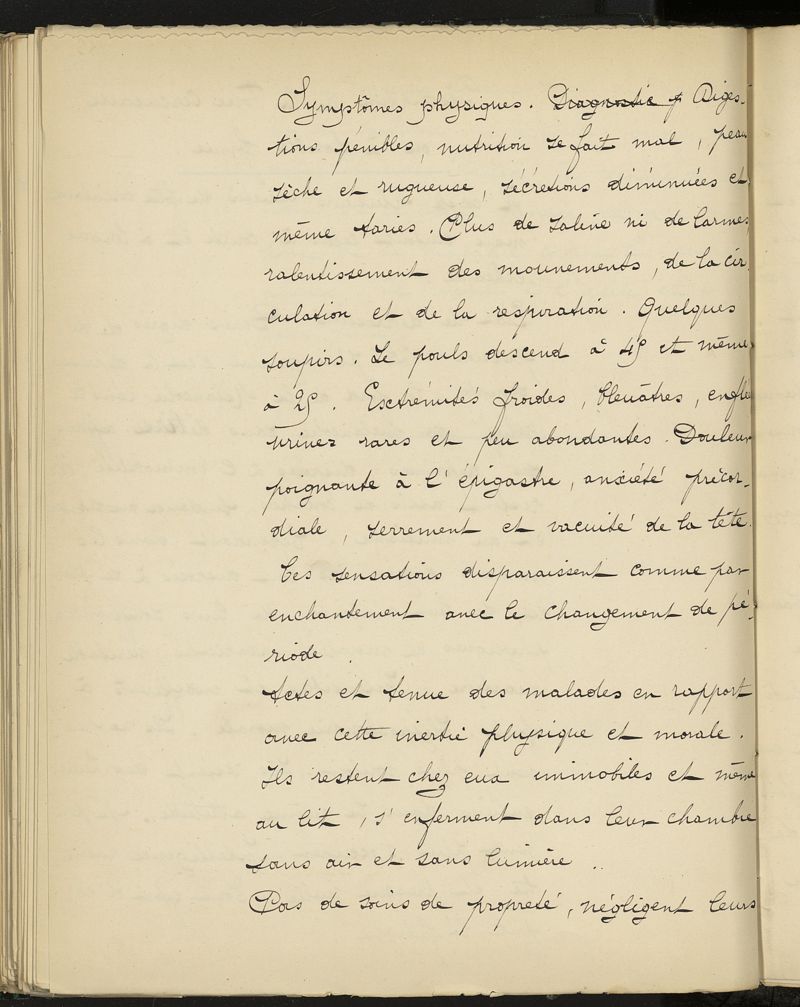 Symptômes physiques. Diagnostic p Diges-
tions pénibles, nutrition se fait mal, peau
sèche et rugueuse, sécrétions diminuées et
même taries. Plus de salive ni de larmes,
ralentissement des mouvements, de la cir
culation et de la respiration. Quelques
soupirs. Le pouls descend à 45 et même
à 25. Exctrémités froides, bleuâtres, enflé
urines rares et peu abondantes. Douleur
poignante à l'épigastre, anxiété précor-
diale, serrement et vacuité de la tête.
Ces sensations disparaissent comme par
enchantement avec le changement de pé-
riode.
Actes et tenue des malades en rapport
avec cette inertie physique et morale.
Ils restent chez eux immobiles et même
au lit, s'enferment dans leur chambre
sans air et sans lumière..
Pas de soins de propreté, négligent leurs